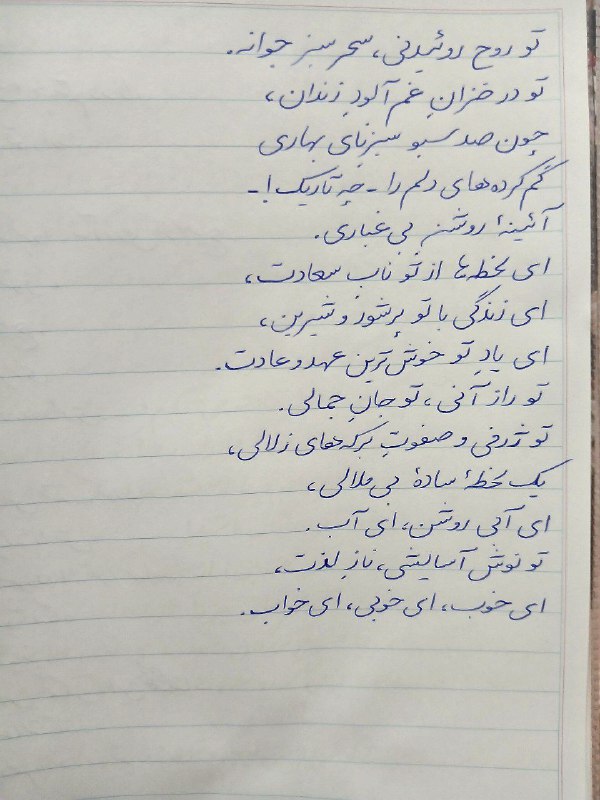 تو روح روئیدنی، سحر سبز جوانه.
تو در خزانِ غم آلودِ زندان،
چون صد سبو سبزنای بهاری
گم کرده‌های دلم را - چه تاریک! -
آئینهٔ روشن بی غباری.
ای لحظه‌ها از تو ناب سعادت،
ای زندگی با تو پرشور و شیرین،
ای یادِ تو خوش‌ترین عهد و عادت.
تو راز آنی، تو جانِ جمالی.
تو ژرفی و صفوتِ برکه‌های زلالی،
یک لحظهٔ سادهٔ بی ملالی،
ای آبی روشن، ای آب.
تو نوش آسایشی، نازِ لذت،
ای خوب، ای خوبی، ای خواب.